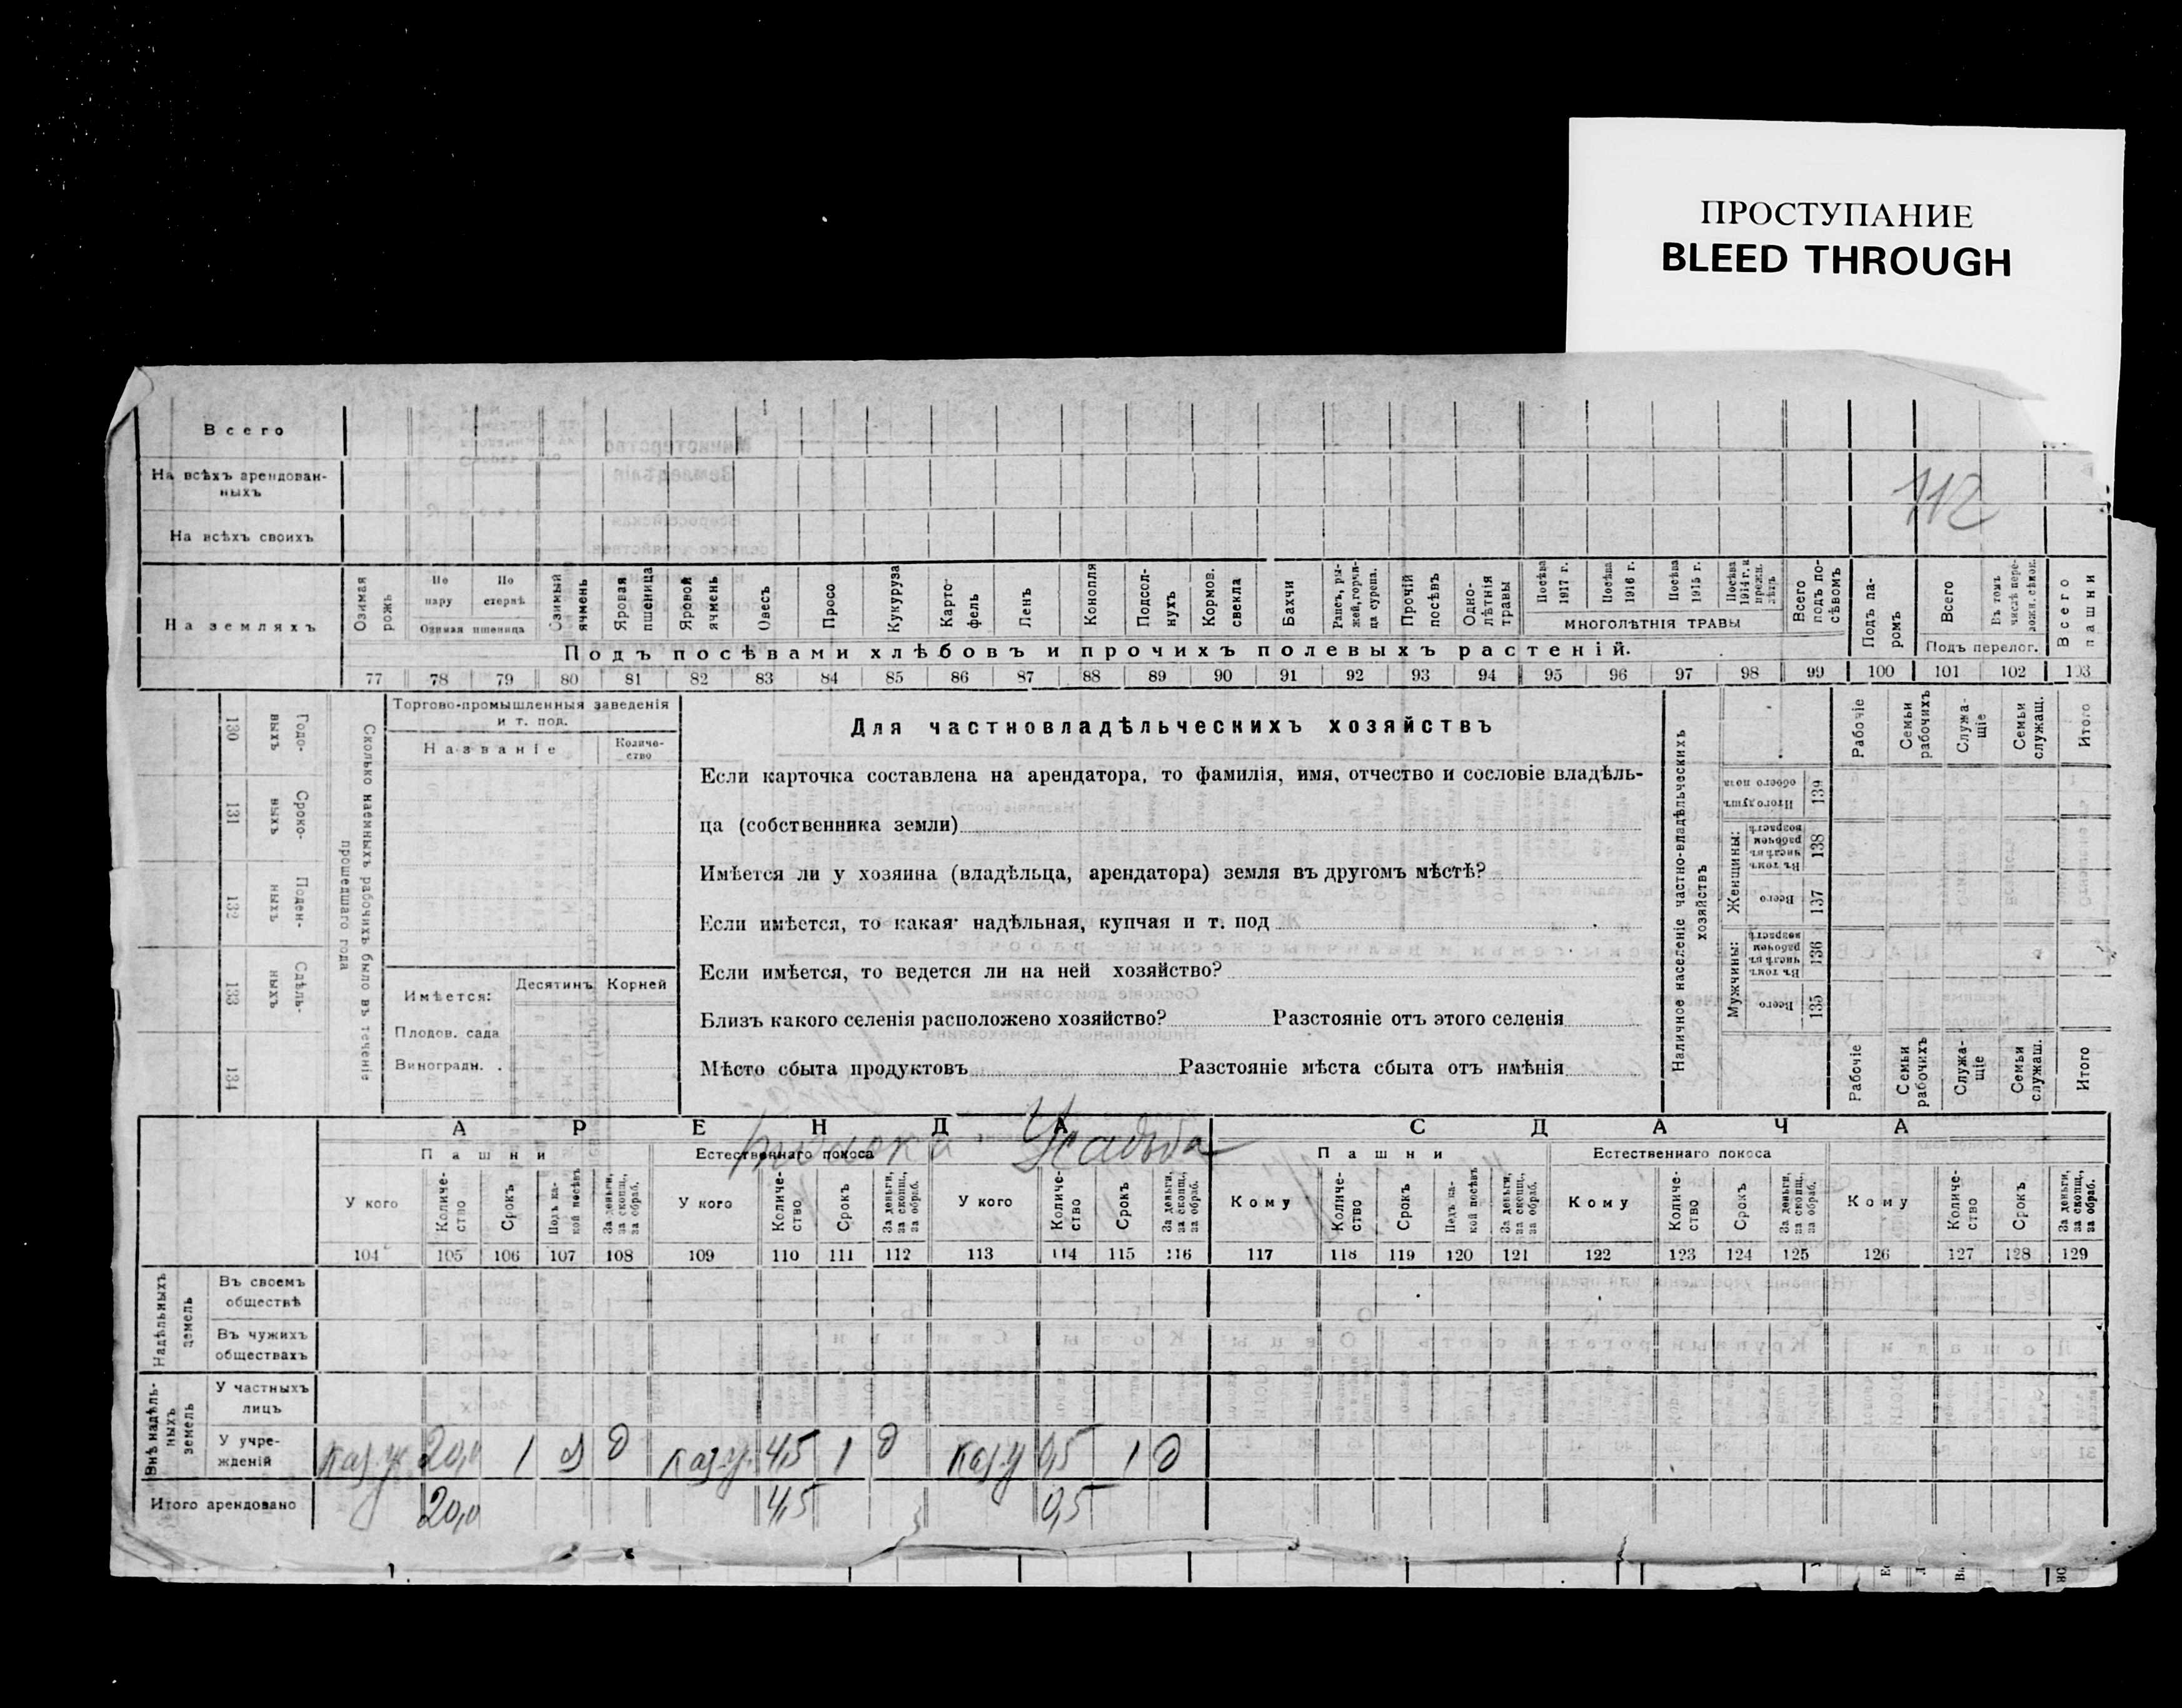 ПРОСТУПАНИЕ
BLEED THROUGH
Всего
На всѣхъ арендован-
ныхъ
112
На всѣхъ своихъ
На земляхъ
Озимая рожь
По пару
По стернѣ
Озимая пшеница
Озимый ячмень
Яровая пшеница
Яровой ячмень
Овесъ
Просо
Кукуруза
Карто-
фель
Ленъ
Конопля
Подсол-
нухъ
Кормов.
свекла
Бахчи
Рапсъ, ры-
жей, горчи-
ца сурепа.
Прочій
посѣвъ
Одно-
лѣтнія
травы
Посѣва
1917 г.
Посѣва
1916 г.
Посѣва
1915 г.
Посѣва
1914 г. и
прежн.
лѣтъ
МНОГОЛѢТНІЯ ТРАВЫ
Всего
подъ по-
сѣвомъ
Подъ па-
ромъ
Всего
Въ томъ
числѣ пере-
ложн. сѣнок.
Подъ перелог.
Всего
пашни
Подъ посѣвами хлѣбовъ и прочихъ полевыхъ растеній.
77 78 79 80 81 82 83 84 85 86 87 88 89 90 91 92 93 94 95 96 97 98 99 100 101 102 103
Сколько наемныхъ рабочихъ было въ теченіе
прошедшаго года
Годо-
выхъ
130
Сроко-
выхъ
131
Поден-
ныхъ
132
Сдѣль-
ныхъ
133
134
Торгово-промышленныя заведенія
и т. под.
Названіе
Количе-
ство
Имѣется:
Десятинъ
Корней
Плодов. сада
Виноградн.
Для частновладѣльческихъ хозяйствъ
Если карточка составлена на арендатора, то фамилія, имя, отчество и сословіе владѣль-
ца (собственника земли)
Имѣется ли у хозяина (владѣльца, арендатора) земля въ другомъ мѣстѣ?
Если имѣется, то какая надѣльная, купчая и т. под
Если имѣется, то ведется ли на ней хозяйство?
Близъ какого селенія расположено хозяйство? Разстояніе отъ этого селенія
Мѣсто сбыта продуктовъ Разстояніе мѣста сбыта отъ имѣнія
Наличное населеніе частно-владѣльческихъ
хозяйствъ
Мужчины:
Всего
135
Въ томъ
числѣ въ
рабочемъ
возрастѣ
136
Женщины:
Всего
137
Въ томъ
числѣ въ
рабочемъ
возрастѣ
138
Итого душъ
обоего пола
139
Рабочіе
Семьи
рабочихъ
Служа-
щіе
Семьи
служащ.
Итого
Рабочіе
Семьи
рабочихъ
Служа-
щіе
Семьи
служащ.
Итого
АРЕНДА
СДАЧА
Пашни
Естественнаго покоса
Усадьба
Пашни
Естественнаго покоса
У кого
Количе-
ство
Срокъ
Подъ ка-
кой посѣвъ
За деньги,
за скопщ.,
за обраб.
У кого
Количе-
ство
Срокъ
За деньги,
за скопщ.,
за обраб.
У кого
Количе-
ство
Срокъ
За деньги,
за скопщ.,
за обраб.
Кому
Количе-
ство
Срокъ
Подъ ка-
кой посѣвъ
За деньги,
за скопщ.,
за обраб.
Кому
Количе-
ство
Срокъ
За деньги,
за скопщ.,
за обраб.
Кому
Количе-
ство
Срокъ
За деньги,
за скопщ.,
за обраб.
104 105 106 107 108 109 110 111 112 113 114 115 116 117 118 119 120 121 122 123 124 125 126 127 128 129
Надѣльныхъ
земель
Въ своемъ
обществѣ
Въ чужихъ
обществахъ
Внѣ надѣль-
ныхъ
земель
У частныхъ
лицъ
У учре-
жденій
каз. у. 20,0 1 д каз. у. 4,5 1 д каз. у 0,5 1 д
Итого арендовано 20,0 4,5 0,5